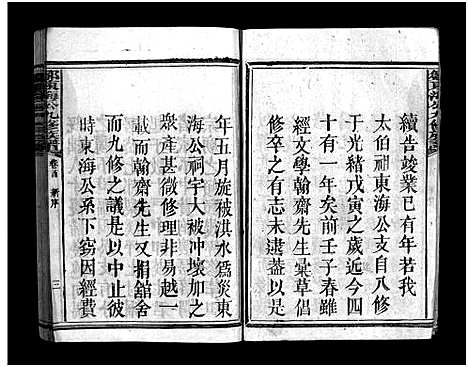 續告竣業已有年若我
太伯祠東海公支自八修
于光緒戊寅之歲近今四
十有一年矣前壬子春雖
經文學翰齋先生彙草倡
修卒之有志未逮蓋以是
年五月旋被洪水為災東
海公祠宇大被冲壞加之
眾產甚微修理非易越一
載而翰齋先生又捐舘舍
而九修之議是以中止彼
時東海公系下窃因經費
東海公九修宗譜
卷首
新序
三